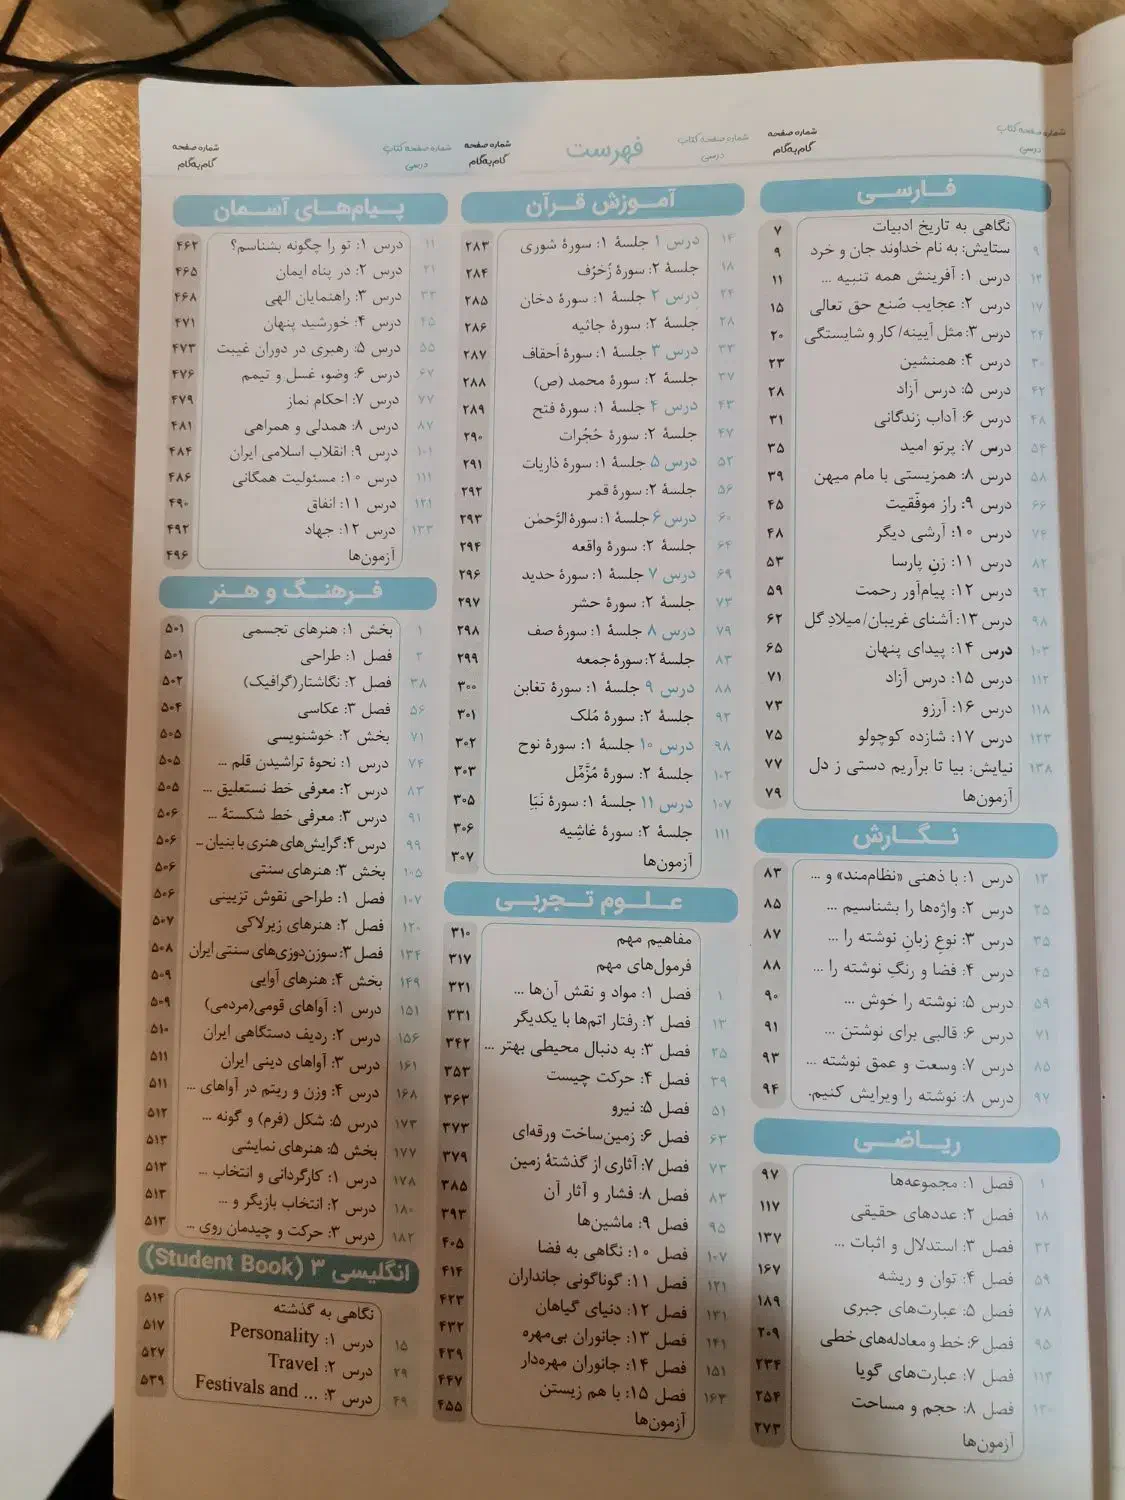 فهرست
شماره صفحه کتاب درسی
شماره صفحه گام‌به‌گام
فارسی
نگاهی به تاریخ ادبیات ۷
۹ ستایش: به نام خداوند جان و خرد ۹
۱۲ درس ۱: آفرینش همه تنبیه ... ۱۱
۱۷ درس ۲: عجایب صُنع حق تعالی ۱۵
۲۴ درس ۳: مثل آیینه/ کار و شایستگی ۲۰
۳۰ درس ۴: همنشین ۲۳
۴۲ درس ۵: درس آزاد ۲۸
۴۸ درس ۶: آداب زندگانی ۳۱
۵۴ درس ۷: پرتو امید ۳۵
۵۸ درس ۸: همزیستی با مام میهن ۳۹
۶۶ درس ۹: راز موفّقیت ۴۵
۷۴ درس ۱۰: آرشی دیگر ۴۸
۸۲ درس ۱۱: زنِ پارسا ۵۳
۹۲ درس ۱۲: پیام‌آور رحمت ۵۹
۹۸ درس ۱۳: آشنای غریبان/ میلادِ گل ۶۲
۱۰۳ درس ۱۴: پیدای پنهان ۶۵
۱۱۲ درس ۱۵: درس آزاد ۷۱
۱۱۸ درس ۱۶: آرزو ۷۳
۱۲۳ درس ۱۷: شازده کوچولو ۷۵
۱۳۸ نیایش: بیا تا برآریم دستی ز دل ۷۷
آزمون‌ها ۷۹
نگارش
۱۳ درس ۱: با ذهنی «نظام‌مند» و ... ۸۳
۲۵ درس ۲: واژه‌ها را بشناسیم ... ۸۵
۳۵ درس ۳: نوعِ زبانِ نوشته را ... ۸۷
۴۵ درس ۴: فضا و رنگِ نوشته را ... ۸۸
۵۹ درس ۵: نوشته را خوش ... ۹۰
۷۱ درس ۶: قالبی برای نوشتن ... ۹۱
۸۵ درس ۷: وسعت و عمق نوشته ... ۹۳
۹۷ درس ۸: نوشته را ویرایش کنیم. ۹۴
ریاضی
۱ فصل ۱: مجموعه‌ها ۹۷
۱۸ فصل ۲: عددهای حقیقی ۱۱۷
۳۲ فصل ۳: استدلال و اثبات ... ۱۳۷
۵۹ فصل ۴: توان و ریشه ۱۶۷
۷۸ فصل ۵: عبارت‌های جبری ۱۸۹
۹۵ فصل ۶: خط و معادله‌های خطی ۲۰۹
۱۱۳ فصل ۷: عبارت‌های گویا ۲۳۴
۱۳۰ فصل ۸: حجم و مساحت ۲۵۴
آزمون‌ها ۲۷۳
شماره صفحه کتاب درسی
شماره صفحه گام‌به‌گام
آموزش قرآن
۱۴ درس ۱ جلسهٔ ۱: سورهٔ شوری ۲۸۳
۱۸ جلسهٔ ۲: سورهٔ زُخرُف ۲۸۴
۲۴ درس ۲ جلسهٔ ۱: سورهٔ دخان ۲۸۵
۲۸ جلسهٔ ۲: سورهٔ جاثیه ۲۸۶
۳۳ درس ۳ جلسهٔ ۱: سورهٔ اَحقاف ۲۸۷
۳۷ جلسهٔ ۲: سورهٔ محمد (ص) ۲۸۸
۴۳ درس ۴ جلسهٔ ۱: سورهٔ فتح ۲۸۹
۴۷ جلسهٔ ۲: سورهٔ حُجُرات ۲۹۰
۵۲ درس ۵ جلسهٔ ۱: سورهٔ ذاریات ۲۹۱
۵۶ جلسهٔ ۲: سورهٔ قمر ۲۹۲
۶۰ درس ۶ جلسهٔ ۱: سورهٔ الرَّحمٰن ۲۹۳
۶۴ جلسهٔ ۲: سورهٔ واقعه ۲۹۴
۶۹ درس ۷ جلسهٔ ۱: سورهٔ حدید ۲۹۶
۷۳ جلسهٔ ۲: سورهٔ حشر ۲۹۷
۷۹ درس ۸ جلسهٔ ۱: سورهٔ صف ۲۹۸
۸۳ جلسهٔ ۲: سورهٔ جمعه ۲۹۹
۸۸ درس ۹ جلسهٔ ۱: سورهٔ تغابن ۳۰۰
۹۲ جلسهٔ ۲: سورهٔ مُلک ۳۰۱
۹۸ درس ۱۰ جلسهٔ ۱: سورهٔ نوح ۳۰۲
۱۰۲ جلسهٔ ۲: سورهٔ مُزَّمِّل ۳۰۳
۱۰۷ درس ۱۱ جلسهٔ ۱: سورهٔ نَبَإ ۳۰۵
۱۱۱ جلسهٔ ۲: سورهٔ غاشِیه ۳۰۶
آزمون‌ها ۳۰۷
علوم تجربی
مفاهیم مهم ۳۱۰
فرمول‌های مهم ۳۱۷
۱ فصل ۱: مواد و نقش آن‌ها ... ۳۲۱
۱۳ فصل ۲: رفتار اتم‌ها با یکدیگر ۳۳۱
۲۵ فصل ۳: به دنبال محیطی بهتر ... ۳۴۲
۳۹ فصل ۴: حرکت چیست ۳۵۳
۵۱ فصل ۵: نیرو ۳۶۳
۶۳ فصل ۶: زمین‌ساخت ورقه‌ای ۳۷۳
۷۳ فصل ۷: آثاری از گذشتهٔ زمین ۳۷۹
۸۳ فصل ۸: فشار و آثار آن ۳۸۵
۹۵ فصل ۹: ماشین‌ها ۳۹۳
۱۰۷ فصل ۱۰: نگاهی به فضا ۴۰۵
۱۲۱ فصل ۱۱: گوناگونی جانداران ۴۱۴
۱۳۱ فصل ۱۲: دنیای گیاهان ۴۲۳
۱۴۱ فصل ۱۳: جانوران بی‌مهره ۴۳۲
۱۵۱ فصل ۱۴: جانوران مهره‌دار ۴۳۹
۱۶۳ فصل ۱۵: با هم زیستن ۴۴۷
آزمون‌ها ۴۵۵
شماره صفحه کتاب درسی
شماره صفحه گام‌به‌گام
پیام‌های آسمان
۱۱ درس ۱: تو را چگونه بشناسم؟ ۴۶۲
۲۱ درس ۲: در پناه ایمان ۴۶۵
۳۳ درس ۳: راهنمایان الهی ۴۶۸
۴۵ درس ۴: خورشید پنهان ۴۷۱
۵۵ درس ۵: رهبری در دوران غیبت ۴۷۳
۶۷ درس ۶: وضو، غسل و تیمم ۴۷۶
۷۷ درس ۷: احکام نماز ۴۷۹
۸۷ درس ۸: همدلی و همراهی ۴۸۱
۱۰۱ درس ۹: انقلاب اسلامی ایران ۴۸۴
۱۱۱ درس ۱۰: مسئولیت همگانی ۴۸۶
۱۲۱ درس ۱۱: انفاق ۴۹۰
۱۳۳ درس ۱۲: جهاد ۴۹۲
آزمون‌ها ۴۹۶
فرهنگ و هنر
۱ بخش ۱: هنرهای تجسمی ۵۰۱
۲ فصل ۱: طراحی ۵۰۱
۳۸ فصل ۲: نگاشتار(گرافیک) ۵۰۲
۵۶ فصل ۳: عکاسی ۵۰۴
۷۱ بخش ۲: خوشنویسی ۵۰۵
۷۴ درس ۱: نحوهٔ تراشیدن قلم ... ۵۰۵
۸۳ درس ۲: معرفی خط نستعلیق ... ۵۰۵
۹۱ درس ۳: معرفی خط شکستهٔ ... ۵۰۶
۹۹ درس ۴: گرایش‌های هنری با بنیان ... ۵۰۶
۱۰۵ بخش ۳: هنرهای سنتی ۵۰۶
۱۰۷ فصل ۱: طراحی نقوش تزیینی ۵۰۶
۱۲۰ فصل ۲: هنرهای زیرلاکی ۵۰۷
۱۳۴ فصل ۳: سوزن‌دوزی‌های سنتی ایران ۵۰۸
۱۴۹ بخش ۴: هنرهای آوایی ۵۰۹
۱۵۱ درس ۱: آواهای قومی(مردمی) ۵۰۹
۱۵۶ درس ۲: ردیف دستگاهی ایران ۵۱۰
۱۶۱ درس ۳: آواهای دینی ایران ۵۱۱
۱۶۸ درس ۴: وزن و ریتم در آواهای ... ۵۱۱
۱۷۳ درس ۵: شکل (فرم) و گونه ... ۵۱۲
۱۷۷ بخش ۵: هنرهای نمایشی ۵۱۳
۱۷۸ درس ۱: کارگردانی و انتخاب ... ۵۱۳
۱۸۰ درس ۲: انتخاب بازیگر و ... ۵۱۳
۱۸۲ درس ۳: حرکت و چیدمان روی ... ۵۱۳
انگلیسی ۳ (Student Book)
نگاهی به گذشته ۵۱۴
۱۵ درس ۱: Personality ۵۱۷
۲۹ درس ۲: Travel ۵۲۷
۴۹ درس ۳: Festivals and ... ۵۳۹